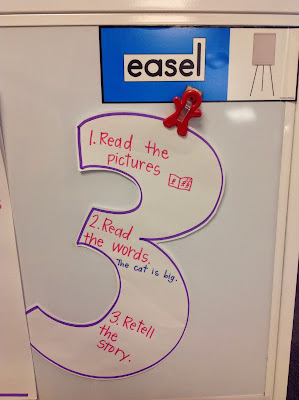 easel
1. Read the
pictures
2. Read
the words.
The cat is big.
3. Retell
the
story.